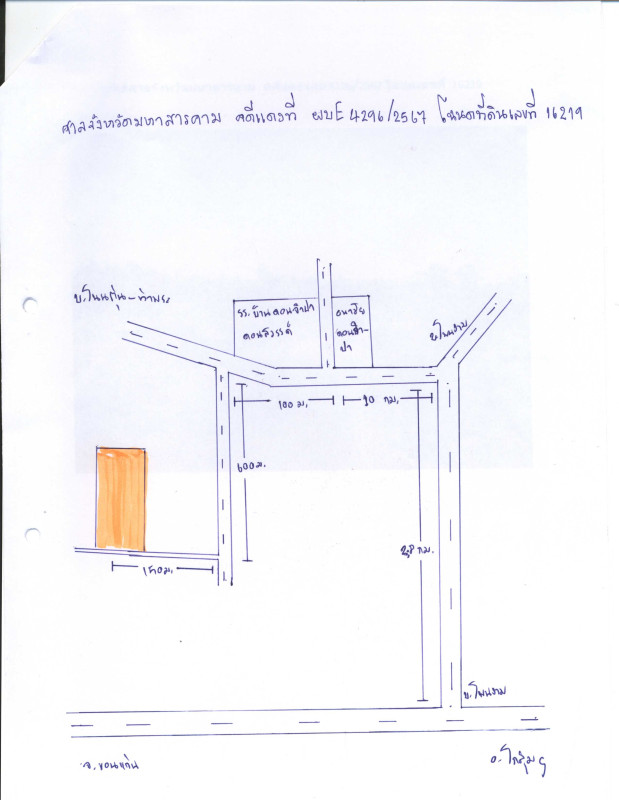 ศาลจังหวัดมหาสารคาม คดีแดงที่ ผบE 4296/2567 โฉนดที่ดินเลขที่ 16219
บ.โนนตุ่น-ท่าพระ
รร.บ้านดอนจำปา
ดอนสวรรค์
อนามัย
ดอนจำ-
ปา
บ.โนนงาม
100 ม.
600 ม.
กม.
2.8 กม.
150 ม.
บ.โนนงาม
จ.ขอนแก่น
อ.โกสุมฯ